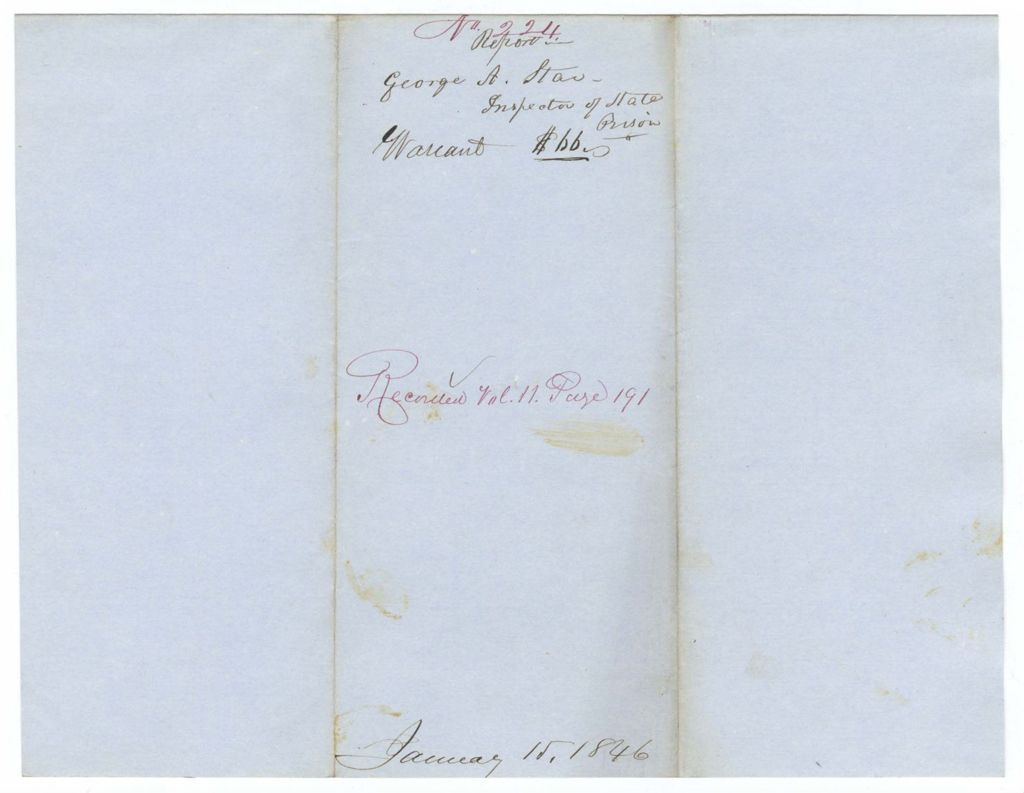 No. 224
Report
George A. Star
Inspector of State
Prison
Warrant $66.
Recorded Vol. 11. Page 191
January 15, 1846